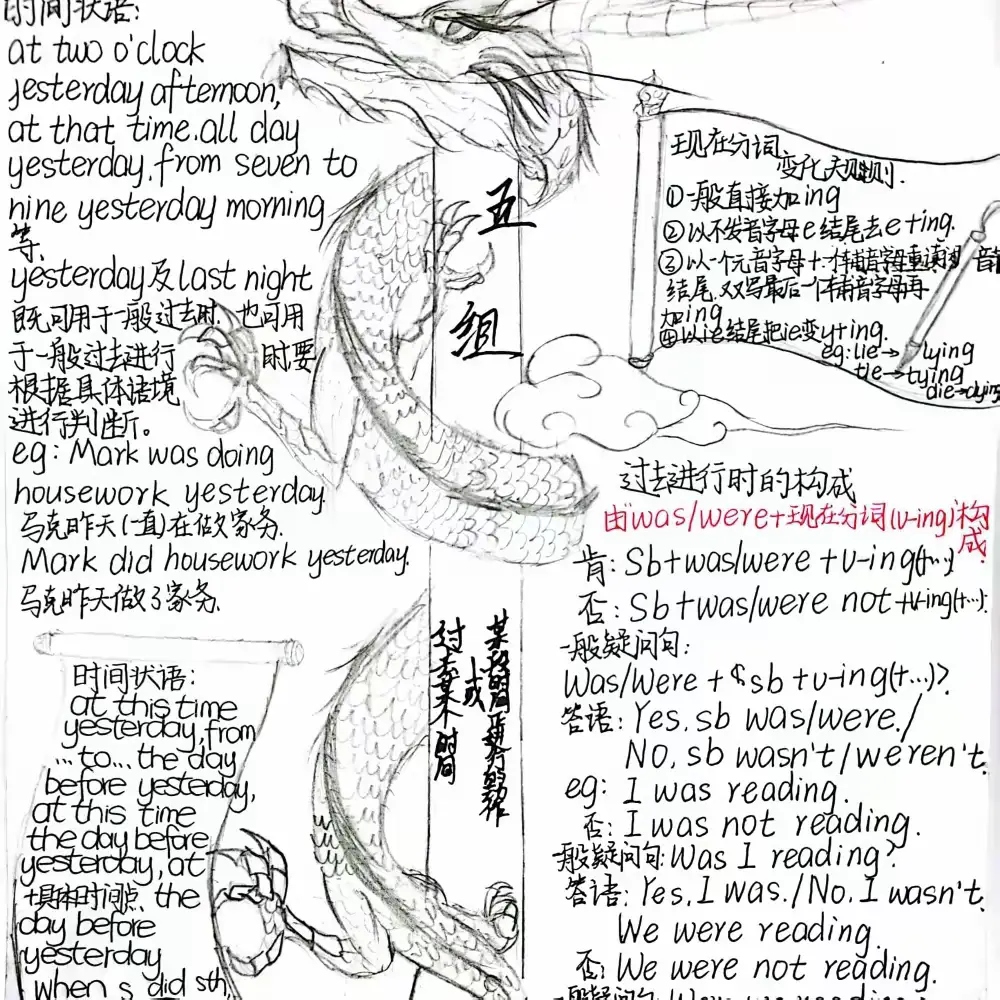 时间状语:
at two o'clock
yesterday afternoon,
at that time.all day
yesterday,from seven to
nine yesterday morning
等.
yesterday及last night
既可用于一般过去时,也可用
于一般过去进行 时要
根据具体语境
进行判断。
eg: Mark was doing
housework yesterday.
马克昨天(一直)在做家务.
Mark did housework yesterday.
马克昨天做了家务.
时间状语:
at this time
yesterday,from
...to...the day
before yesterday,
at this time
the day before
yesterday,at
+具体时间点 the
day before
yesterday
when s did sth,
五
组
过去某个时间
或
某段时间正在进行的动作
现在分词
变化规则.
①一般直接加ing
②以不发音字母e结尾去e+ing.
③以一个元音字母+一个辅音字母重读闭音节
结尾.双写最后一个辅音字母再
加ing
④以ie结尾把ie变y+ing.
eg:lie→lying
tie→tying
die→dying
过去进行时的构成
由was/were+现在分词(v-ing)构
成.
肯:Sb+was/were+v-ing(+…)
否:Sb+was/were not+v-ing(+…).
一般疑问句:
Was/Were+sb+v-ing(+…)?
答语:Yes,sb was/were./
No,sb wasn't/weren't.
eg: I was reading.
否:I was not reading.
一般疑问句:Was I reading?
答语:Yes,I was./No,I wasn't.
We were reading.
否:We were not reading.